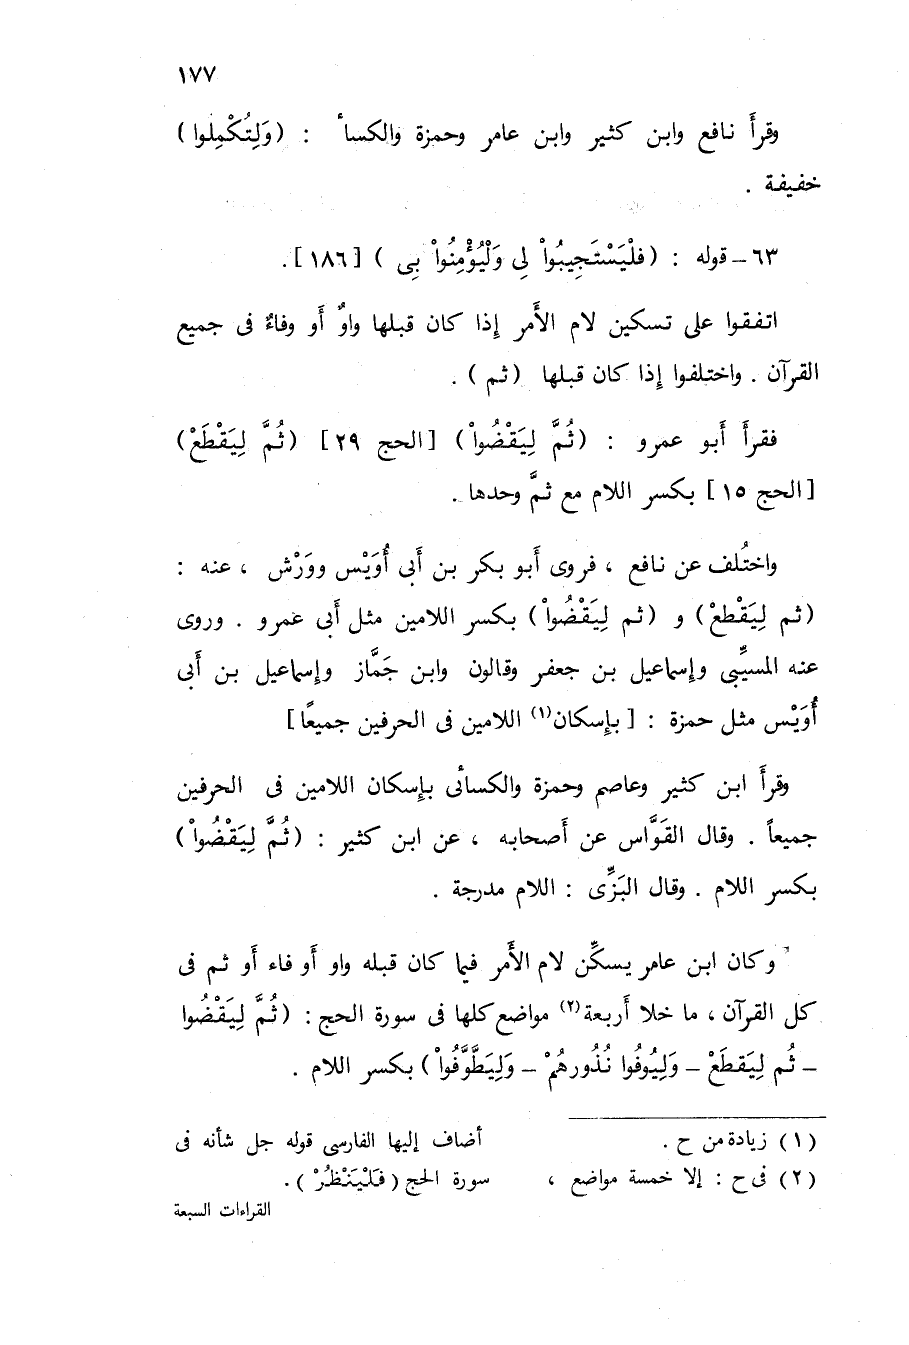 ١٧٧
وقرأَ نافع وابن كثير وابن عامر وحمزة والكسا ٔ : ( وَلِتُكْمِلُوا )
خفيفة .
٦٣ – قوله : ( فلْيَسْتَجِيبُواْ لِى وَلْيُؤْمِنُواْ بِى ) [ ١٨٦ ] .
اتفقوا على تسكين لام الأَمر إِذا كان قبلها واوٌ أَو وفاءٌ فى جميع
القرآن . واختلفوا إِذا كان قبلها ( ثم ) .
فقرأَ أَبو عمرو : ( ثُمَّ لِيَقْضُواْ ) [ الحج ٢٩ ] ( ثُمَّ لِيَقْطَعْ )
[ الحج ١٥ ] بكسر اللام مع ثمَّ وحدها .
واختُلف عن نافع ، فروى أَبو بكر بن أَبى أُوَيْس ووَرْش ، عنه :
( ثم لِيَقْطعْ ) و ( ثم لِيَقْضُواْ ) بكسر اللامين مثل أَبى عمرو . وروى
عنه المسيِّبى وإسماعيل بن جعفر وقالون وابن جَمَّاز وإسماعيل بن أَبى
أُوَيْس مثل حمزة : [ بإِسكان(١) اللامين فى الحرفين جميعًا ]
وقرأَ ابن كثير وعاصم وحمزة والكسائى بإِسكان اللامين فى الحرفين
جميعاً . وقال القَوَّاس عن أَصحابه ، عن ابن كثير : ( ثُمَّ لِيَقْضُواْ )
بكسر اللام . وقال البَزِّى : اللام مدرجة .
وكان ابن عامر يسكِّن لام الأَمر فيما كان قبله واو أَو فاء أَو ثم فى
كل القرآن ، ما خلا أَربعة(٢) مواضع كلها فى سورة الحج : ( ثُمَّ لِيَقْضُوا
– ثُم لِيَقطَعْ – وَلِيُوفُوا نُذُورهُمْ – وَلِيَطَّوَّفُواْ ) بكسر اللام .
( ١ ) زيادة من ح .
( ٢ ) فى ح : إلا خمسة مواضع ،
أضاف إليها الفارسى قوله جل شأنه فى
سورة الحج ( فَلْيَنْظُرْ ) .
القراءات السبعة